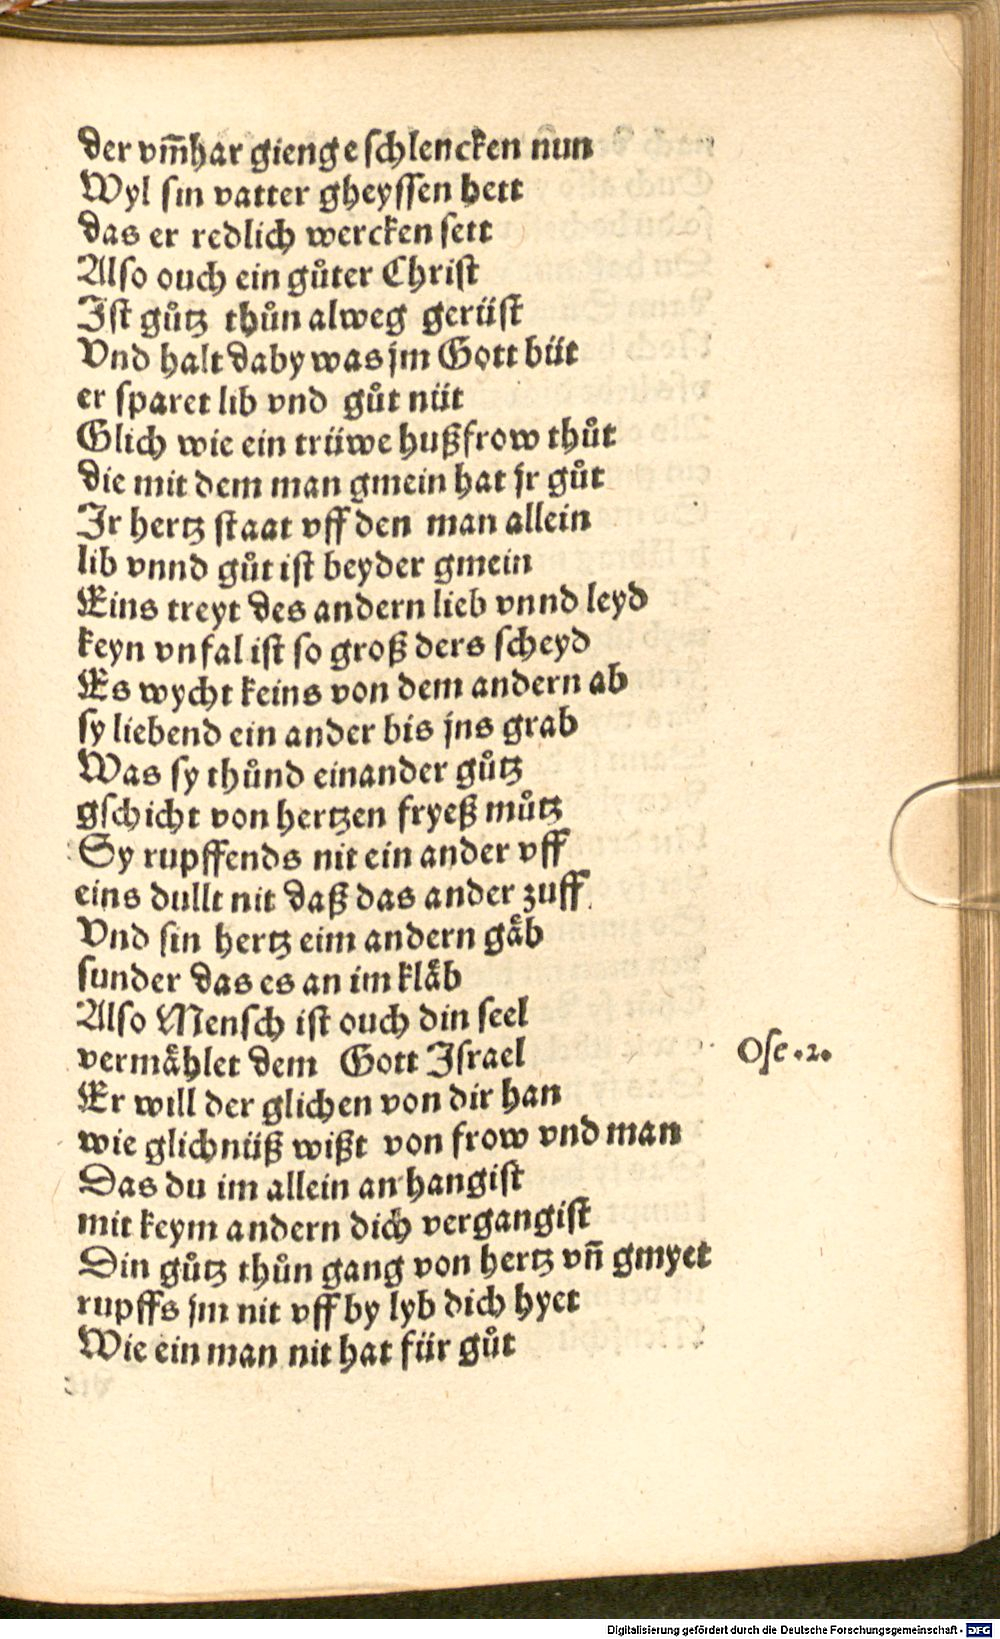 der vm̄har gieng e schlencken nun
Wyl sin vatter gheyssen hett
das er redlich wercken sett
Also ouch ein gůter Christ
Ist gůtz thůn alweg gerüst
Vnd halt daby was jm Gott büt
er sparet lib vnd gůt nüt
Glich wie ein trüwe hußfrow thůt
die mit dem man gmein hat jr gůt
Ir hertz staat vff den man allein
lib vnnd gůt ist beyder gmein
Eins treyt des andern lieb vnnd leyd
keyn vnfal ist so groß ders scheyd
Es wycht keins von dem andern ab
sy liebend ein ander bis jns grab
Was sy thůnd einander gůtz
gschicht von hertzen fryeß můtz
Sy rupffends nit ein ander vff
eins dullt nit daß das ander zuff
Vnd sin hertz eim andern gåb
sunder das es an im klåb
Also Mensch ist ouch din seel
vermåhlet dem Gott Israel
Ose .2.
Er will der glichen von dir han
wie glichnüß wißt von frow vnd man
Das du im allein an hangist
mit keym andern dich vergangist
Din gůtz thůn gang von hertz vñ gmyet
rupffs jm nit vff by lyb dich hyet
Wie ein man nit hat für gůt
Digitalisierung gefördert durch die Deutsche Forschungsgemeinschaft - DFG